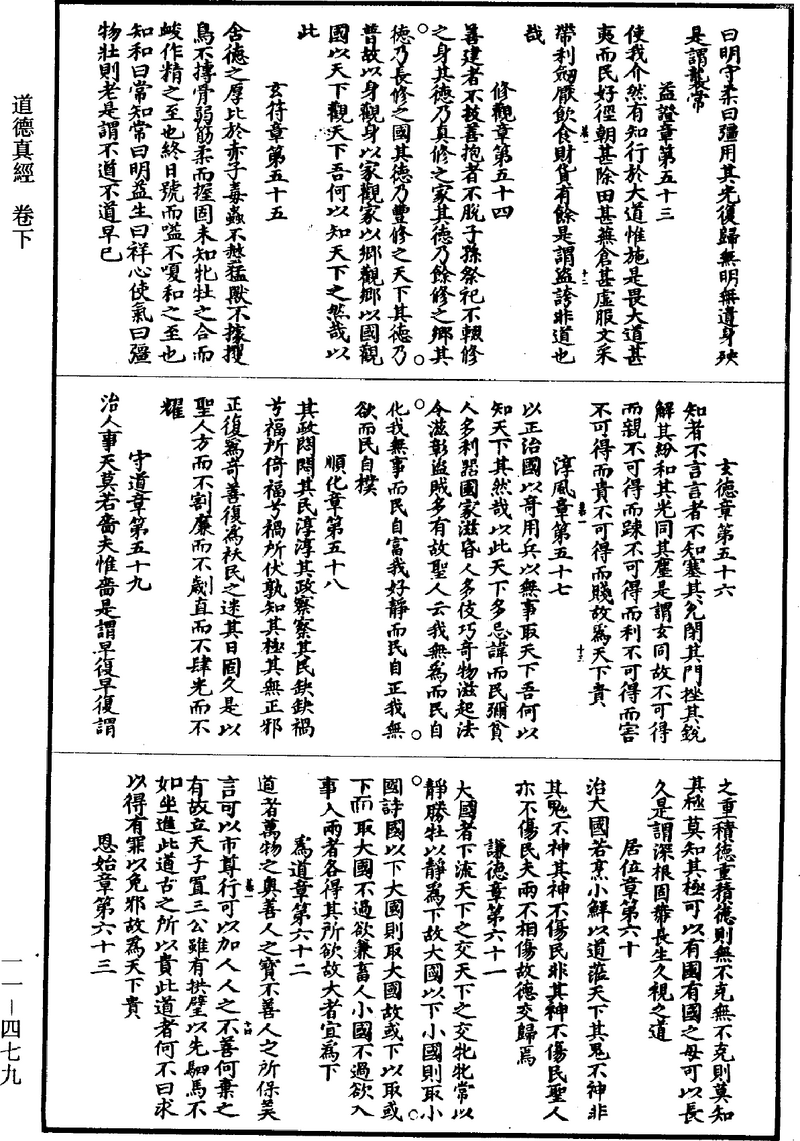 道德真經　卷下
一一－四七九
曰明守柔曰彊用其光復歸無明無遺身殃
是謂襲常
益證章第五十三
使我介然有知行於大道惟施是畏大道甚
夷而民好徑朝甚除田甚蕪倉甚虛服文采
帶利劒厭飲食財貨有餘是謂盜誇非道也
哉
修觀章第五十四
善建者不拔善抱者不脫子孫祭祀不輟修
之身其德乃真修之家其德乃餘修之鄉其
德乃長修之國其德乃豐修之天下其德乃
普故以身觀身以家觀家以鄉觀鄉以國觀
國以天下觀天下吾何以知天下之然哉以
此
玄符章第五十五
含德之厚比於赤子毒蟲不螫猛獸不據攫
鳥不搏骨弱筋柔而握固未知牝牡之合而
峻作精之至也終日號而嗌不嗄和之至也
知和曰常知常曰明益生曰祥心使氣曰彊
物壯則老是謂不道不道早已
玄德章第五十六
知者不言言者不知塞其兌閉其門挫其銳
解其紛和其光同其塵是謂玄同故不可得
而親不可得而踈不可得而利不可得而害
不可得而貴不可得而賤故為天下貴
淳風章第五十七
以正治國以奇用兵以無事取天下吾何以
知天下其然哉以此天下多忌諱而民彌貧
人多利器國家滋昏人多伎巧奇物滋起法
令滋彰盜賊多有故聖人云我無為而民自
化我無事而民自富我好靜而民自正我無
欲而民自樸
順化章第五十八
其政悶悶其民淳淳其政察察其民缺缺禍
兮福所倚福兮禍所伏孰知其極其無正邪
正復為奇善復為祅民之迷其日固久是以
聖人方而不割廉而不劌直而不肆光而不
耀
守道章第五十九
治人事天莫若嗇夫惟嗇是謂早復早復謂
之重積德重積德則無不克無不克則莫知
其極莫知其極可以有國有國之母可以長
久是謂深根固蔕長生久視之道
居位章第六十
治大國若烹小鮮以道蒞天下其鬼不神非
其鬼不神其神不傷民非其神不傷民聖人
亦不傷民夫兩不相傷故德交歸焉
謙德章第六十一
大國者下流天下之交天下之交牝牝常以
靜勝牡以靜為下故大國以下小國則取小
國詩國以下大國則取大國故或下以取或
下而取大國不過欲兼畜人小國不過欲入
事人兩者各得其所欲故大者宜為下
為道章第六十二
道者萬物之奧善人之寶不善人之所保美
言可以市尊行可以加人人之不善何棄之
有故立天子置三公雖有拱璧以先駟馬不
如坐進此道古之所以貴此道者何不曰求
以得有罪以免邪故為天下貴
恩始章第六十三